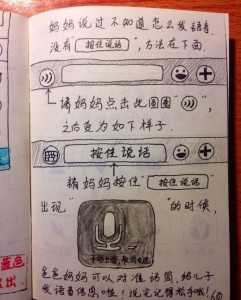 妈妈说过不知道怎么发语音
没有"按住说话",方法在下面
请妈妈点击此圆圈"",
之后变为如下样子.
按住说话
请妈妈按住"按住说话"
出现""的时候,
手指上滑,取消发送
爸爸妈妈可以对准话筒,给儿子
发语音信息啦!说完记得松手啦!
蓝色